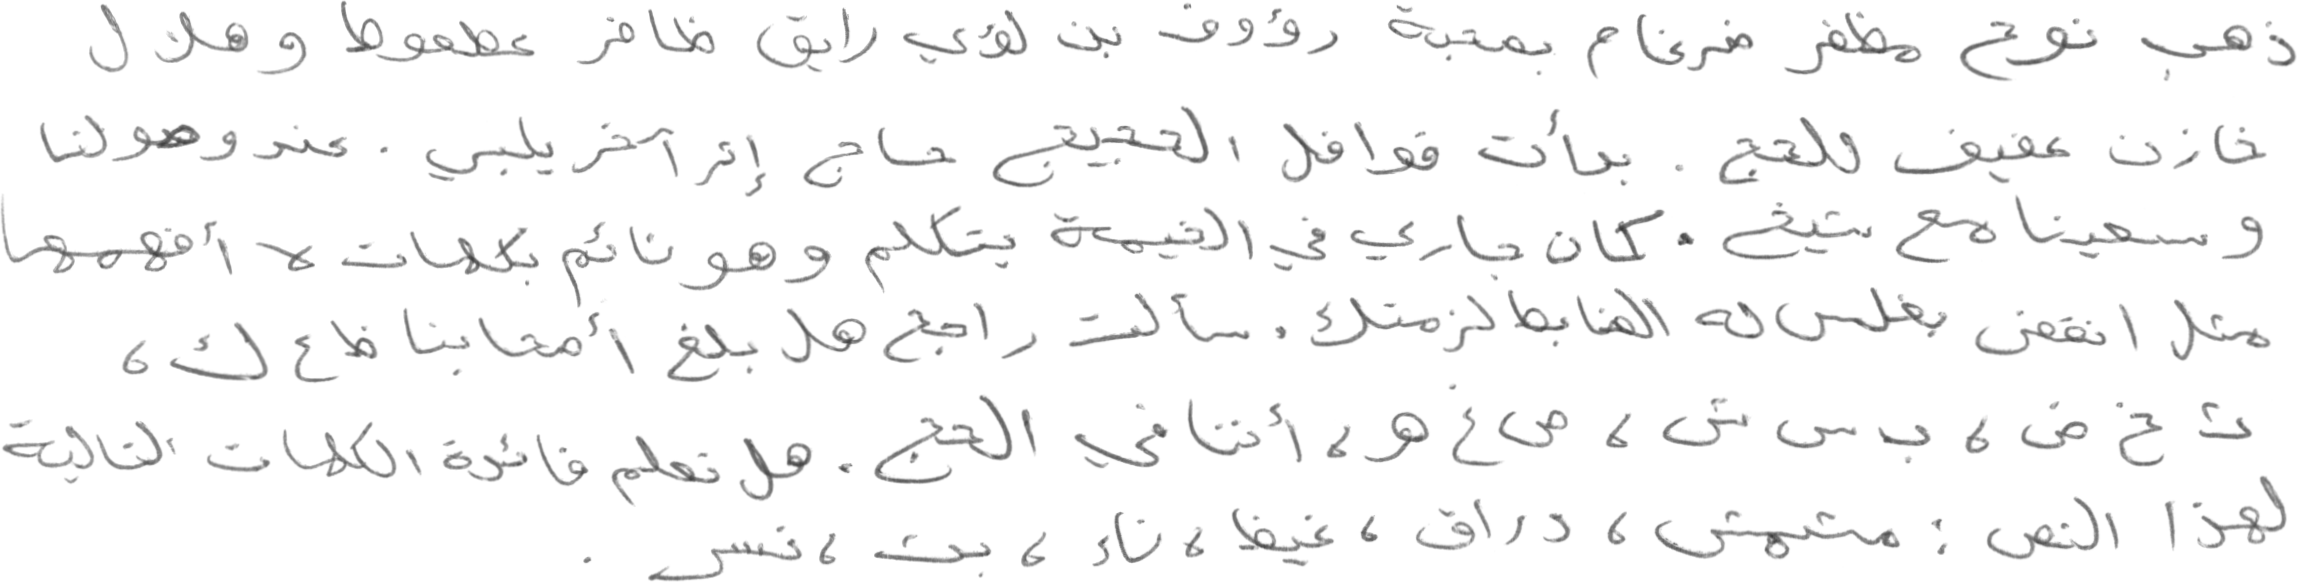 ذهب نوح مظفر ضرغام بصحبة رؤوف بن لؤي رايق ظافر عطعوط وهلال
خازن عفيف للحج . بدأت قوافل الحجيج حاج إثر آخر يلبي . عند وصولنا
وسعينا مع شيخ . كان جاري في الخيمة يتكلم وهو نائم بكلمات لا أفهمها
مثل انقض بغلس له الضابط لزمتك . سألت راجح هل بلغ أصحابنا ظ ء ك ،
ث خ ض ، ب س ش ، ص غ هـ ، أننا في الحج . هل تعلم فائدة الكلمات التالية
لهذا النص : مشمش ، دراق ، غيظ ، ناء ، بث ، نسر .